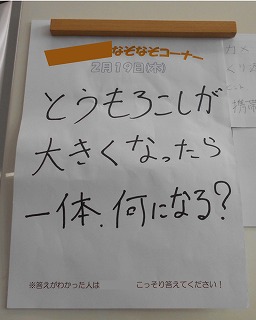 なぞなぞコーナー
2月19日(木)
とうもろこしが
大きくなったら
一体.何になる?
※答えがわかった人は こっそり答えてください!
カメ
携帯